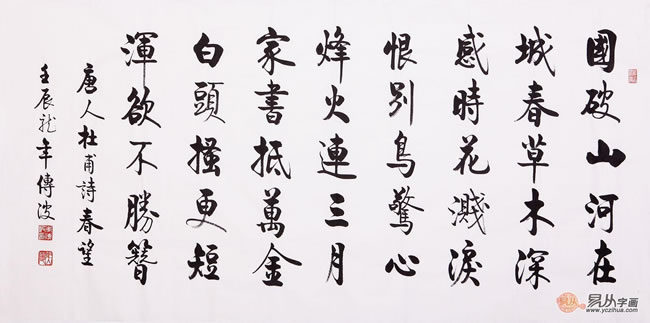 國破山河在
城春草木深
感時花濺淚
恨別鳥驚心
烽火連三月
家書抵萬金
白頭搔更短
渾欲不勝簪
唐人杜甫詩春望
壬辰龍年傳波
易从字画
www.yczihua.com